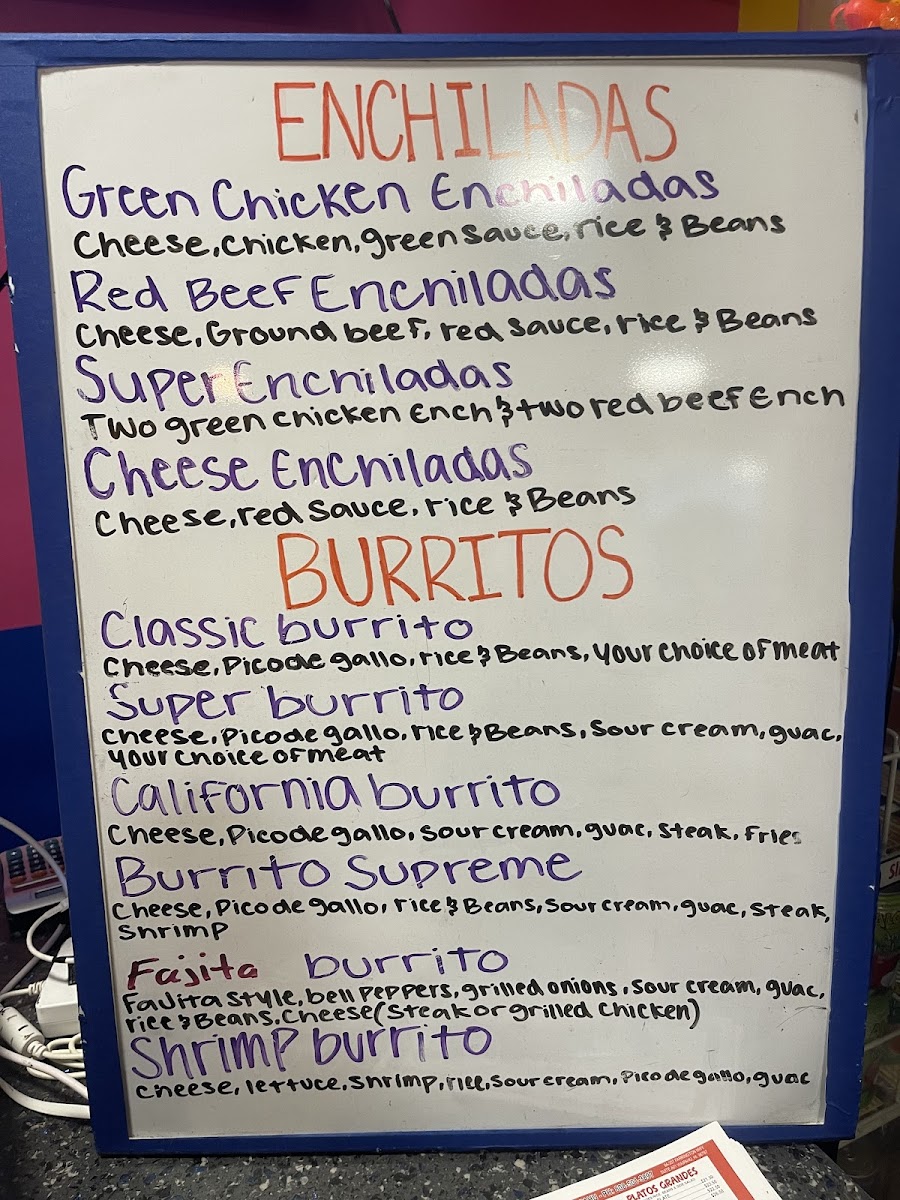 ENCHILADAS
Green Chicken Enchiladas
Cheese, chicken, green sauce, rice & Beans
Red Beef Enchiladas
Cheese, Ground beef, red sauce, rice & Beans
Super Enchiladas
Two green chicken Ench & two red beef Ench
Cheese Enchiladas
Cheese, red sauce, rice & Beans
BURRITOS
Classic burrito
Cheese, Pico de gallo, rice & Beans, your choice of meat
Super burrito
Cheese, Pico de gallo, rice & Beans, Sour cream, guac,
your choice of meat
California burrito
Cheese, Pico de gallo, Sour cream, guac, steak, Fries
Burrito Supreme
Cheese, Pico de gallo, rice & Beans, Sour cream, guac, steak,
shrimp
Fajita burrito
Faujita style, bell peppers, grilled onions, Sour cream, guac,
rice & Beans, Cheese (Steak or grilled chicken)
Shrimp burrito
Cheese, lettuce, shrimp, rice, Sour cream, Pico de gallo, guac
PLATOS GRANDES